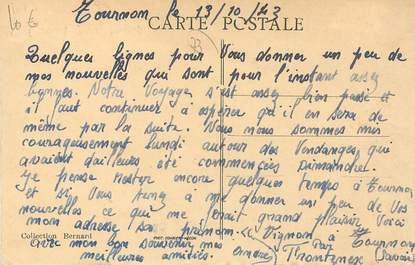 Tournon le 13/10/43
CARTE POSTALE
Quelques lignes pour Vous donner un peu de
mes nouvelles qui sont pour l'instant assez
bonnes. Notre Voyage s'est assez bien passé et
il faut continuer à espérer qu'il en sera de
même par la suite. Nous nous sommes mis
courageusement lundi autour des Vendanges, qui
avaient d'ailleurs été commencées dimanche.
Je pense rester encore quelques temps à Tournon
et si Vous tenez à me donner un peu de Vos
nouvelles ce qui me ferait grand plaisir Voici
mon adresse Son prénom Vignon, à Tournon
Collection Bernard
par Frontenex Savoie
avec mon bon souvenir mes
meilleures amitiés.